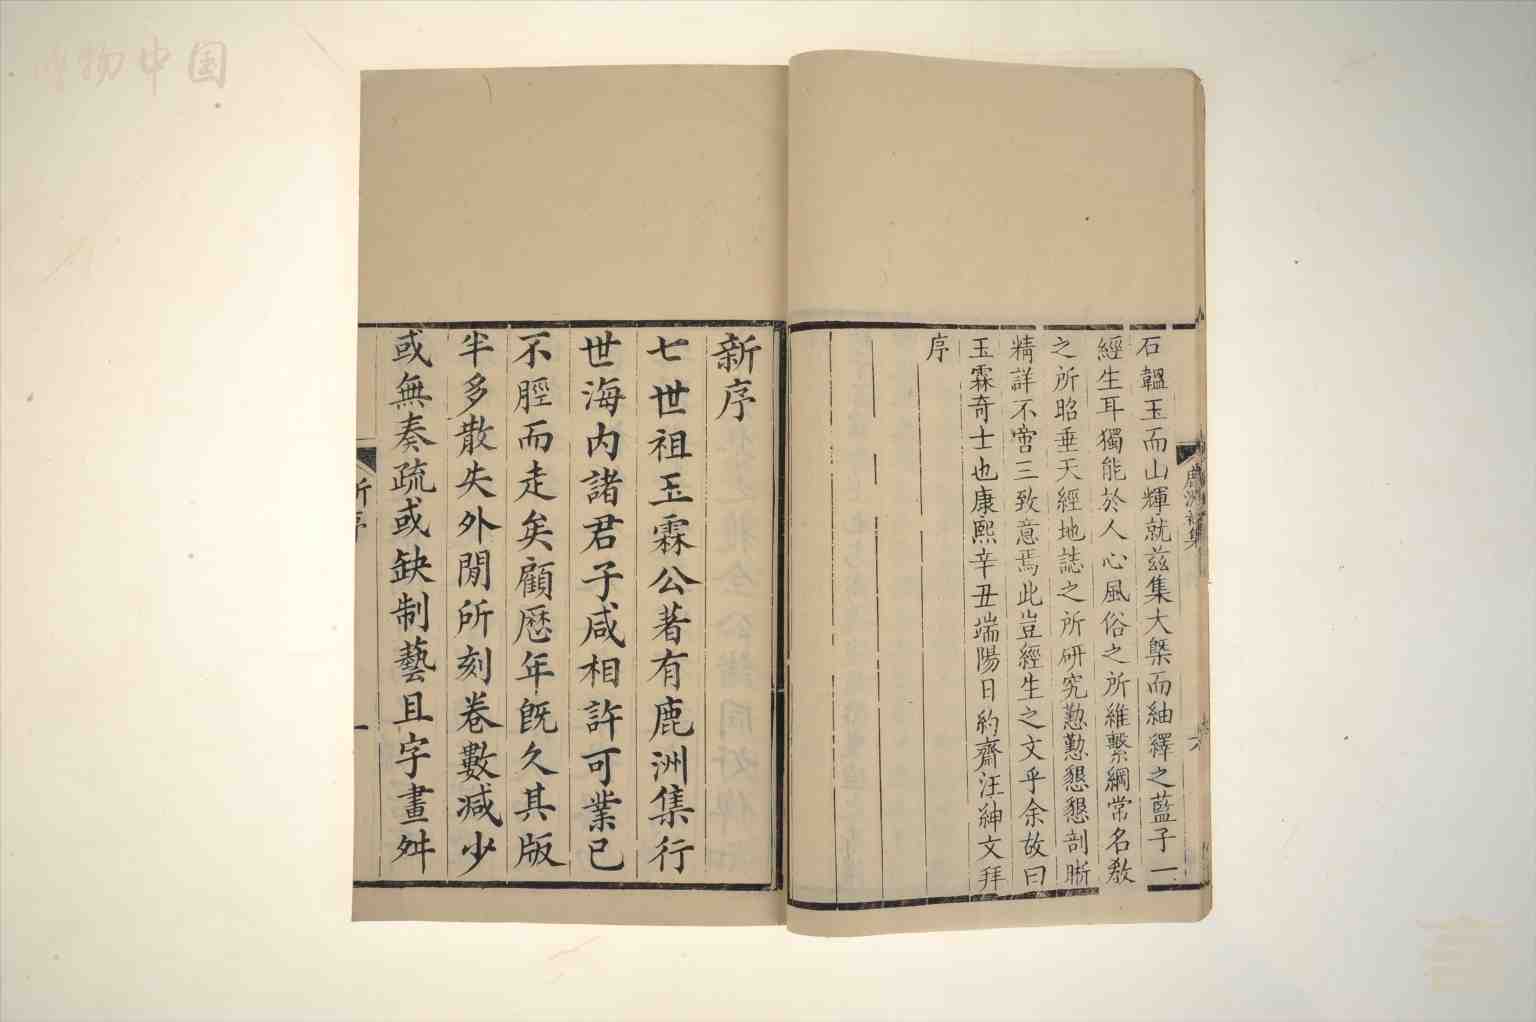 石韞玉而山輝就兹集大槩而紬繹之藍子一
經生耳獨能於人心風俗之所維繫綱常名教
之所昭垂天經地誌之所研究懃懃懇懇剖晰
精詳不啻三致意焉此豈經生之文乎余故曰
玉霖奇士也康熙辛丑端陽日約齋汪紳文拜
序
新序
七世祖玉霖公著有鹿洲集行
世海内諸君子咸相許可業已
不脛而走矣顧歷年既久其版
半多散失外閒所刻卷數减少
或無奏疏或缺制藝且字畫舛
新序
一
鹿洲初集
六
博物中国